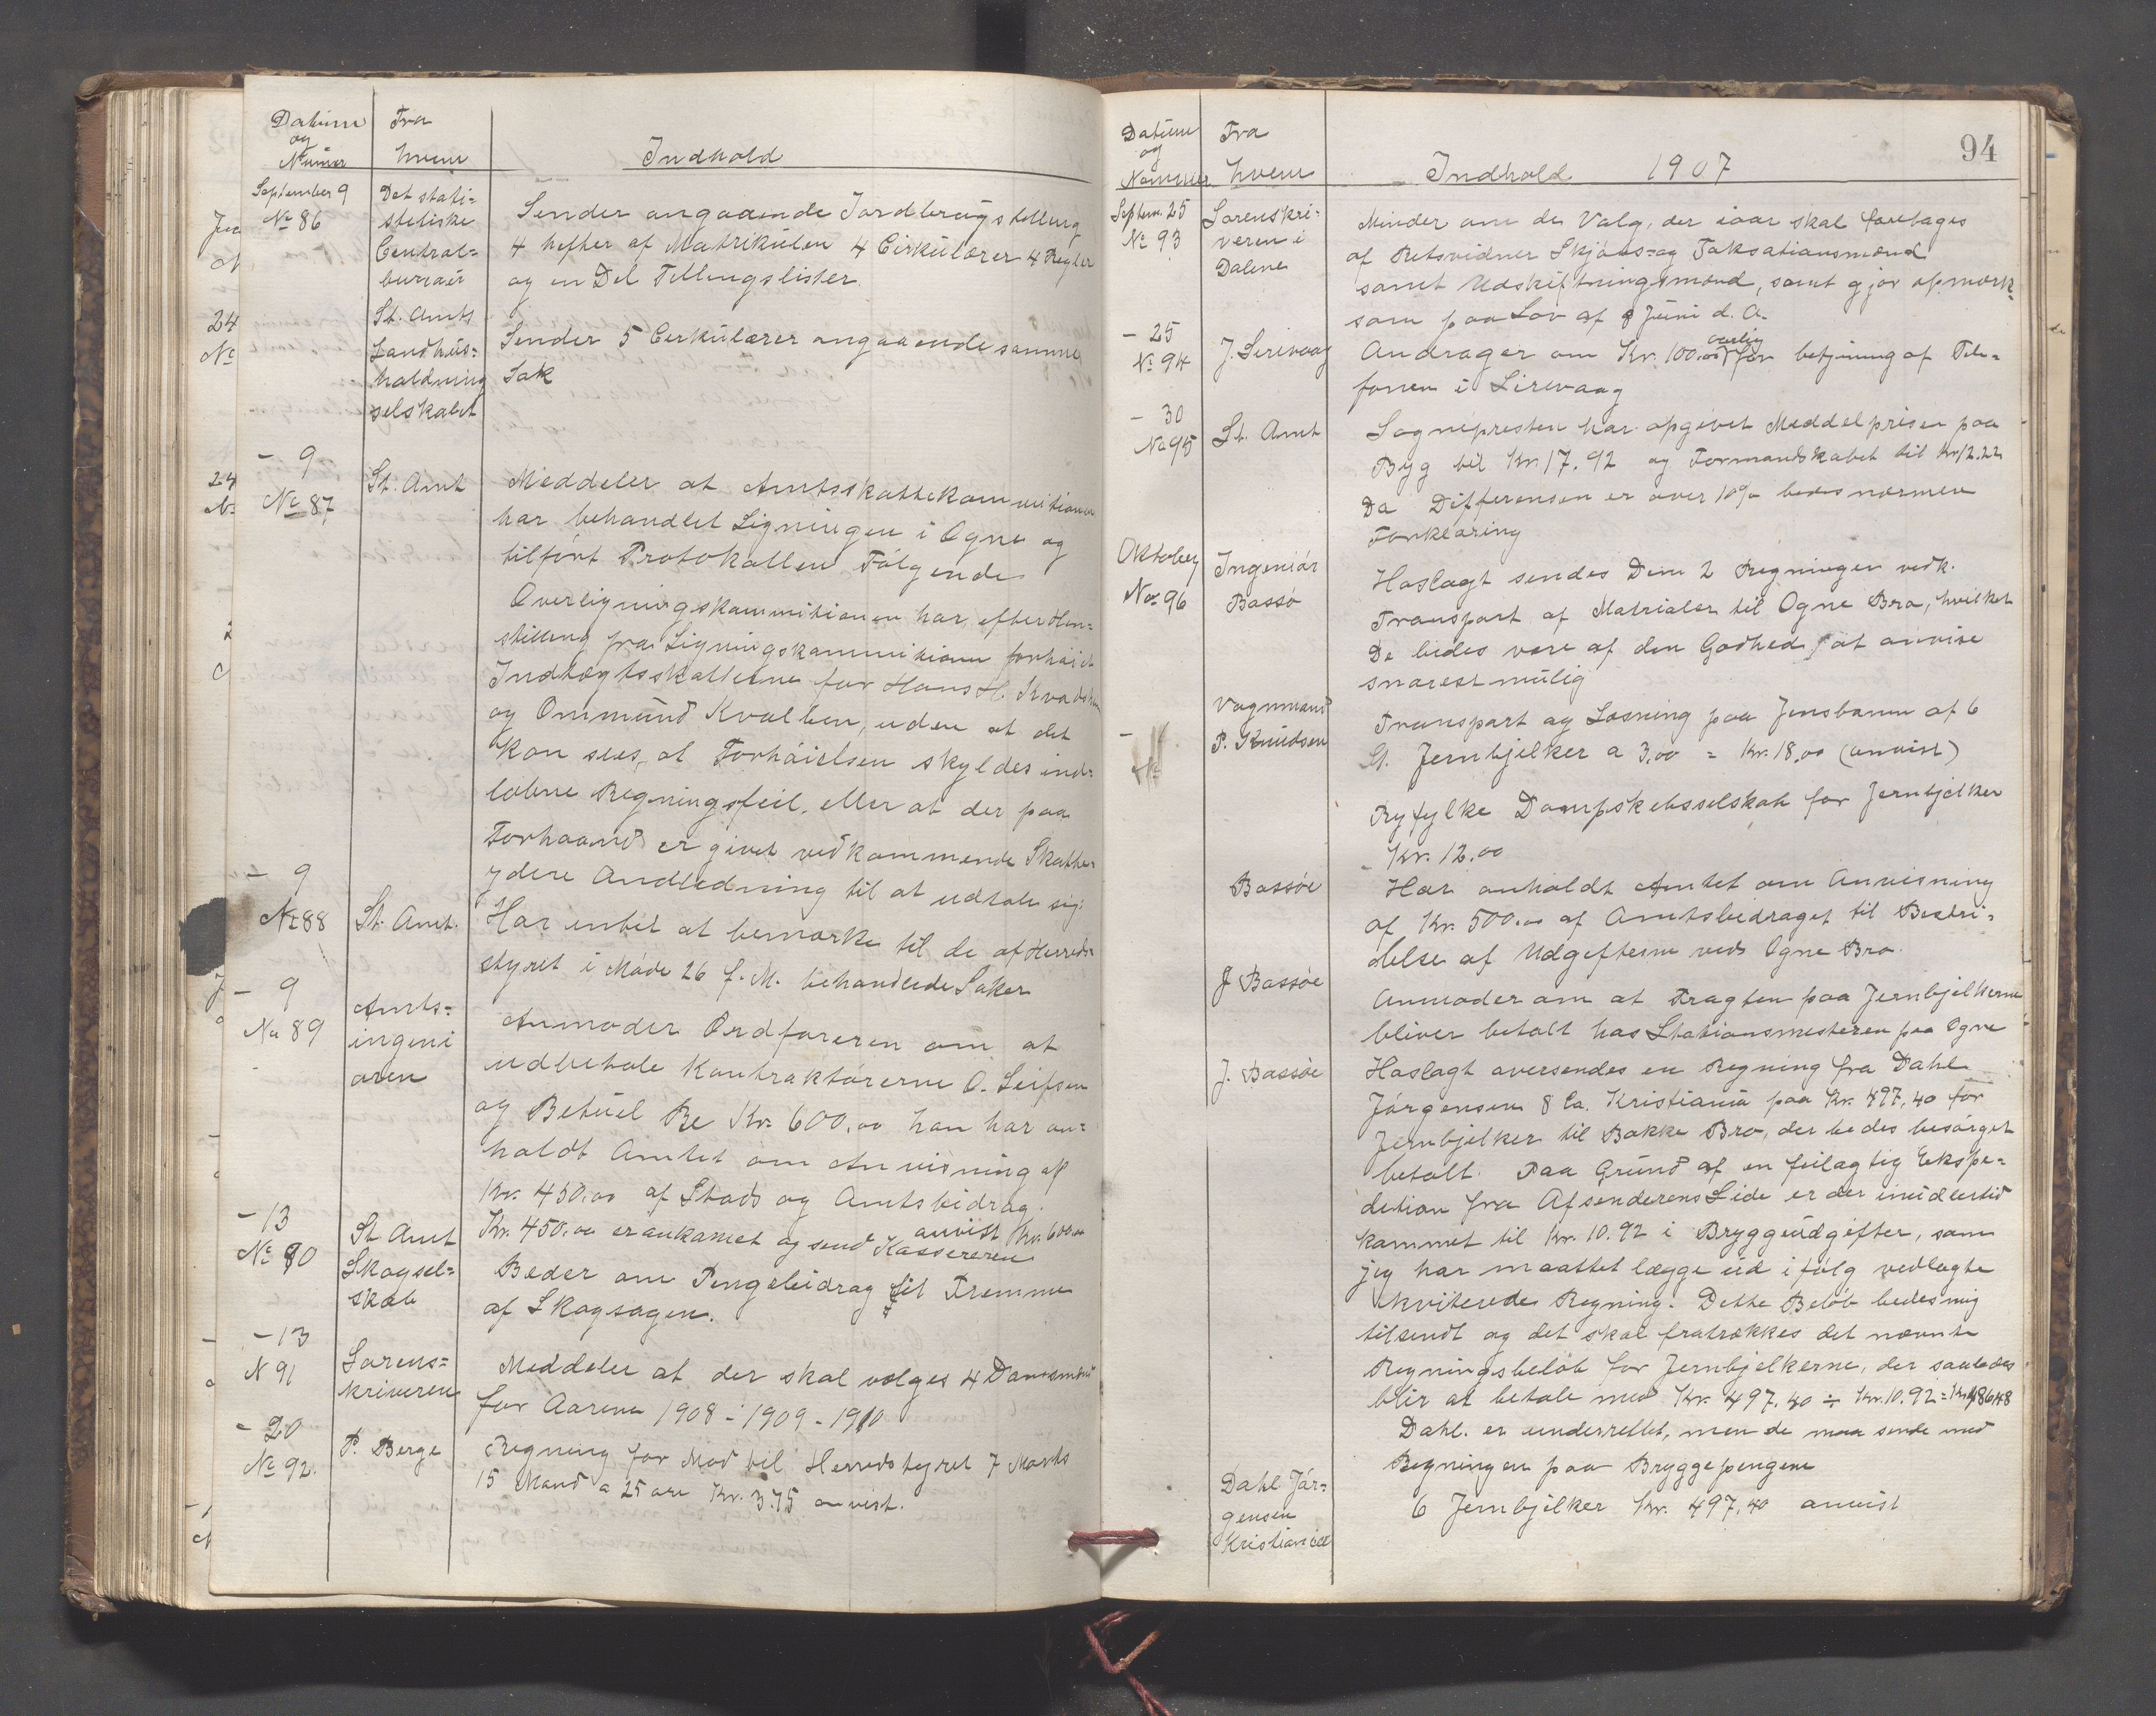 Datum og Numer
Fra hvem
Indhold
September 9
No 86
Det stati=
stetiske
Central=
bureau
Sender angaaende Jordbrugstelling
4 hefter af Matrikulen 4 Cirkulærer 4 Regler
og en Del Tellingslister.
St. Amts
Landhus=
holdning
selskabet
Sender 5 Cirkulærer angaaende samme
Sak
- 9
No 87
St. Amt
Meddeler at Amtsskattekommitionen
har behandlet Ligningen i Ogne og
tilført Protokollen Følgende
Overligningskommitionen har efter Hen=
stilling fra Ligningskommitionen forhøiet
Indtægtsskatterne for Hans H.
og Ommund Kvalben, uden at det
kan sees, at Forhøielsen skyldes ind=
løbne Regningsfeil, eller at der paa
Forhaand er givet vedkommende Skatte
ydere Andledning til at udtale sig.
- 9
No 88
St. Amt.
Har intet at bemærke til de af Herreds
styret i Møde 26 f. M. behandlede Saker
- 9
No 89
Amts=
ingeni
øren
Anmoder Ordføreren om at
udbetale Kontraktørerne O. Leifsen
og Betuel Re Kr. 600,00 han har an=
holdt Amtet om Anvisning af
Kr. 450.00 af Stads og Amtsbidrag.
Kr. 450.00 er ankomet og send Kassereren
anvist Kr. 600.00
- 13
No 90
St Amt
Skogsel=
skab
Beder om Pengebidrag til Fremme
af Skogsagen.
- 13
N 91
Sorens=
kriveren
Meddeler at der skal vælges 4 Domsmænd
for Aarene 1908 - 1909 - 1910
- 20
No 92.
P. Berge
Regning for Mad til Herredstyret 7 Marts
15 Mand a 25 øre Kr. 3.75 anvist.
94
Datum og Nommer
Fra hvem
Indhold 1907
Septem. 25
No 93
Sorenskri=
veren i
Dalene
Minder om de Valg, der iaar skal foretages
af Retsvidner Skjøns= og Taksationsmænd
samt Udskiftningsmænd, samt gjør opmærk=
som paa Lov af 8 Juni d. A.
- 25
No 94
J. Sirevaag
Andrager om Kr. 100.00 aarlig for betjening af Tele=
fonen i Sirevaag
- 30
No 95
St. Amt
Sognepresten har opgivet Meddelprisen paa
Byg til Kr. 17.92 og Formandskabet til Kr 12.22
Da Differensen er over 10% bedes nærmere
Forklaring
Oktober
No 96
Ingeniør
Bassø
Hoslagt sendes Dem 2 Regninger vedk.
Transport af Matrialer til Ogne Bro, hvilket
De bedes være af den Godhed, at anvise
snarest mulig
Vognmand
P. Knudsen
Transport og Losning paa Jernbanen af 6
St. Jernbjelker a 3.00 = Kr. 18.00 (anvist)
Ryfylke Dampskebsselskab for Jernbjelker
Kr. 12.00
Bassøe
Har anholdt Amtet om Anvisning
af Kr. 500.00 af Amtsbidraget til Bestri=
delse af Udgifterne ved Ogne Bro.
J Bassøe
Anmoder om at Fragten paa Jernbjelkerne
bliver betalt hos Stationsmesteren paa Ogne
J. Bassøe
Hoslagt oversendes en Regning fra Dahl
Jørgensen & Co. Kristiania paa Kr. 497,40 for
Jernbjelker til Bakke Bro, der bedes besørget
betalt. Paa Grund af en feilagtig Ekspe=
dition fra Afsenderens Side er der imidlertid
kommet til Kr. 10.92 i Bryggeudgifter, som
jeg har maattet lægge ud i følg vedlagte
kviterede Regning. Dette Beløb bedes mig
tilsendt og det skal fratrækkes det nævnte
Regningsbeløb for Jernbjelkerne, der saaledes
blir at betale med Kr. 497.40 ÷ Kr. 10.92 = Kr 486.48
Dahl. er underrettet, men de maa sende med
Regningen paa Bryggepengene
Dahl Jør=
gensen
Kristiania
6 Jernbjelker Kr. 497.40 anvist